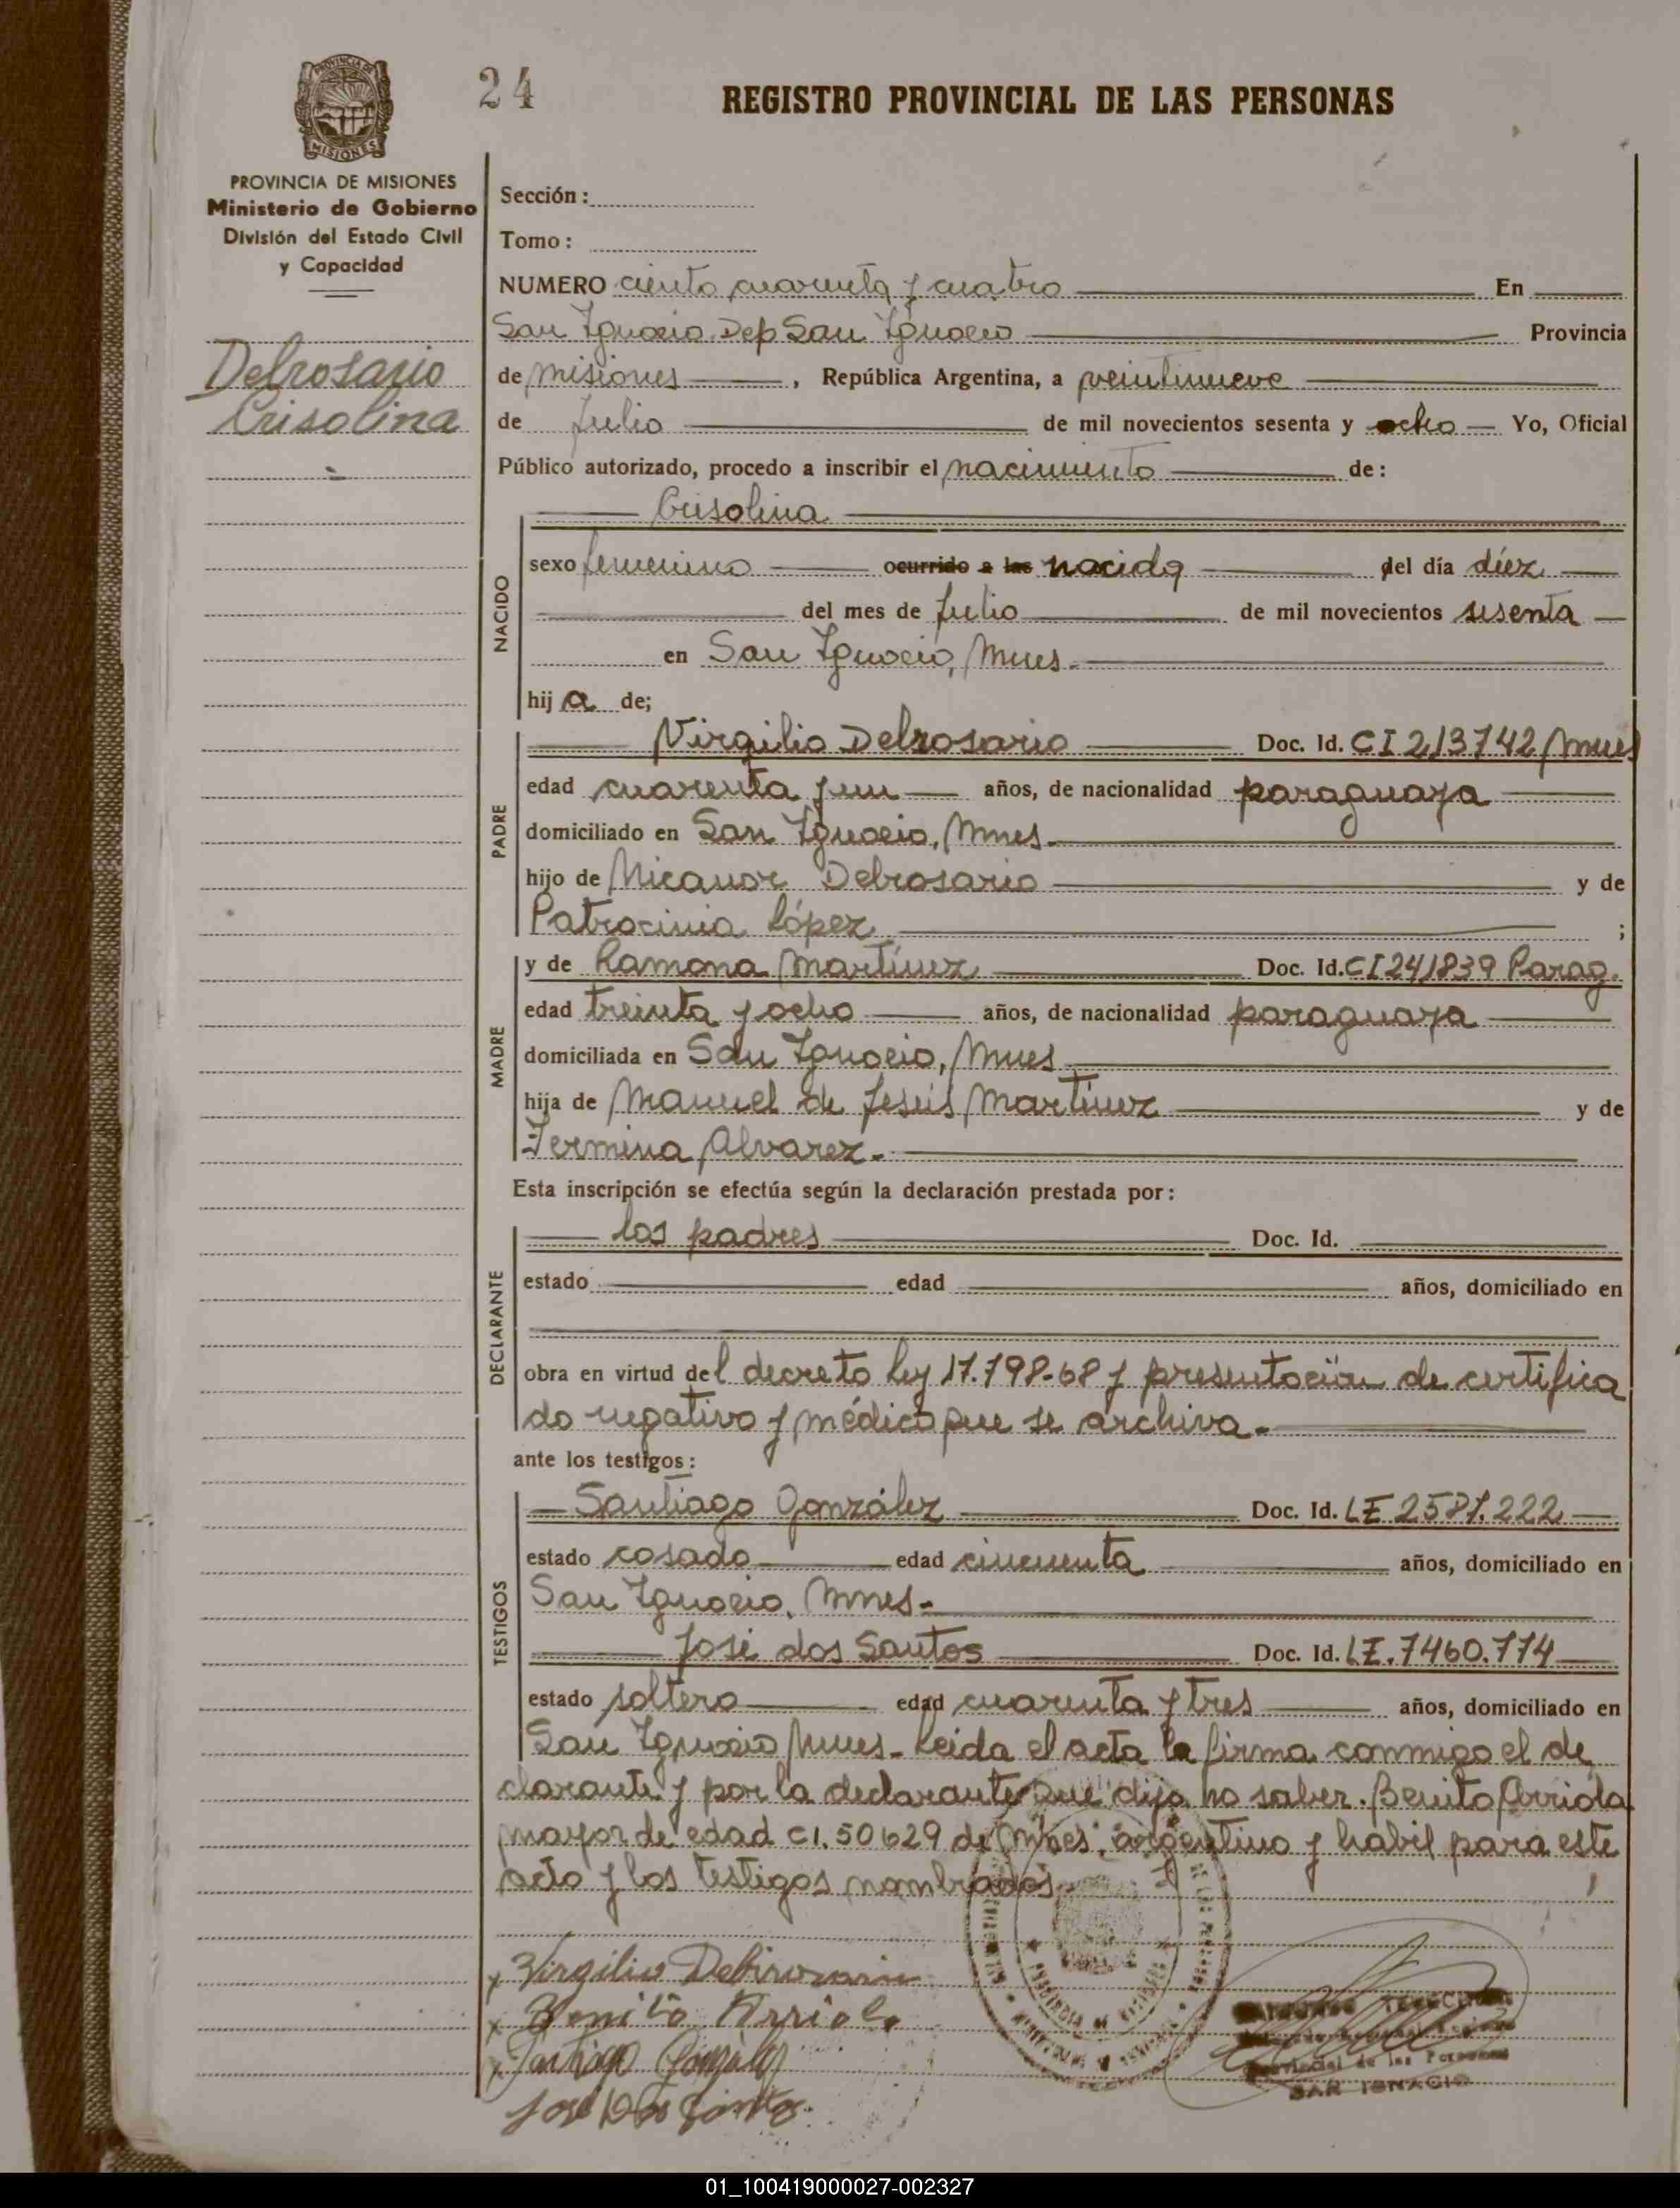 24
REGISTRO PROVINCIAL DE LAS PERSONAS
PROVINCIA DE
MISIONES
PROVINCIA DE MISIONES
Ministerio de Gobierno
División del Estado Civil
y Capacidad
Delrosario
Crisolina
Sección:
Tomo:
NUMERO ciento cuarenta y cuatro En
San Ignacio Dep San Ignacio Provincia
de misiones, República Argentina, a veintinueve
de Julio de mil novecientos sesenta y ocho Yo, Oficial
Público autorizado, procedo a inscribir el nacimiento de:
Crisolina
NACIDO
sexo femenino ocurrido a las nacida del día diez
del mes de Julio de mil novecientos sesenta
en San Ignacio, Mnes.
hija de;
PADRE
Virgilio Delrosario Doc. Id. CI 213742 Mnes
edad cuarenta y un años, de nacionalidad paraguaya
domiciliado en San Ignacio, Mnes.
hijo de Nicanor Delrosario y de
Patrocinia López ;
MADRE
y de Ramona Martínez Doc. Id. CI 241839 Parag.
edad treinta y ocho años, de nacionalidad paraguaya
domiciliada en San Ignacio, Mnes
hija de Manuel de Jesús Martínez y de
Fermina Alvarez.
Esta inscripción se efectúa según la declaración prestada por:
DECLARANTE
los padres Doc. Id.
estado edad años, domiciliado en
obra en virtud del decreto ley 17.798-68 y presentación de certifica
do negativo y médico que se archiva.
ante los testigos:
TESTIGOS
Santiago González Doc. Id. LE 2587.222
estado casado edad cincuenta años, domiciliado en
San Ignacio, Mnes.
José dos Santos Doc. Id. LE. 7460.774
estado soltero edad cuarenta y tres años, domiciliado en
San Ignacio Mnes. Leida el acta la firma conmigo el de
clarante y por la declarante que dijo no saber. Benito Arriola
mayor de edad CI. 50629 de Mnes, argentino y habil para este
acto y los testigos nombrados.
x Virgilio Delrosario
x Benito Arriola
x Santiago González
José Dos Santos
Provincial de las Personas
SAN IGNACIO
01_100419000027-002327